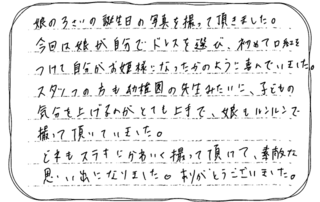 娘の3さいの誕生日の写真を撮って頂きました。
今回は娘が自分でドレスを選び、初めて口紅を
つけて自分がお姫様になったかのように喜んでいました。
スタッフの方も幼稚園の先生みたいに、子どもの
気分を上げるのがとても上手で、娘もルンルンで
撮って頂いていました。
どれもステキにかわいく撮って頂けて、素敵な
思い出になりました。ありがとうございました。